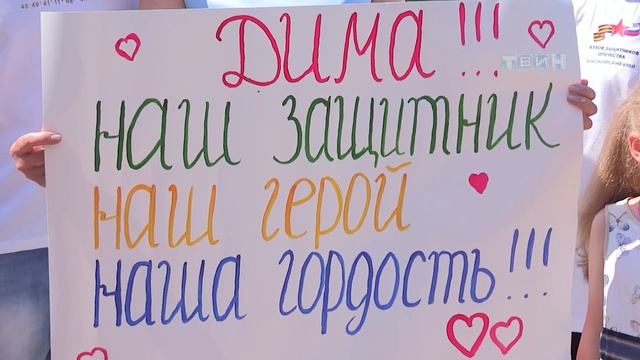 ДИМА!!!
наш защитник
наш герой
наша гордость!!!
ТВИН
КУБОК ЗАЩИТНИКОВ
ОТЕЧЕСТВА
КРАСНОЯРСКИЙ КРАЙ